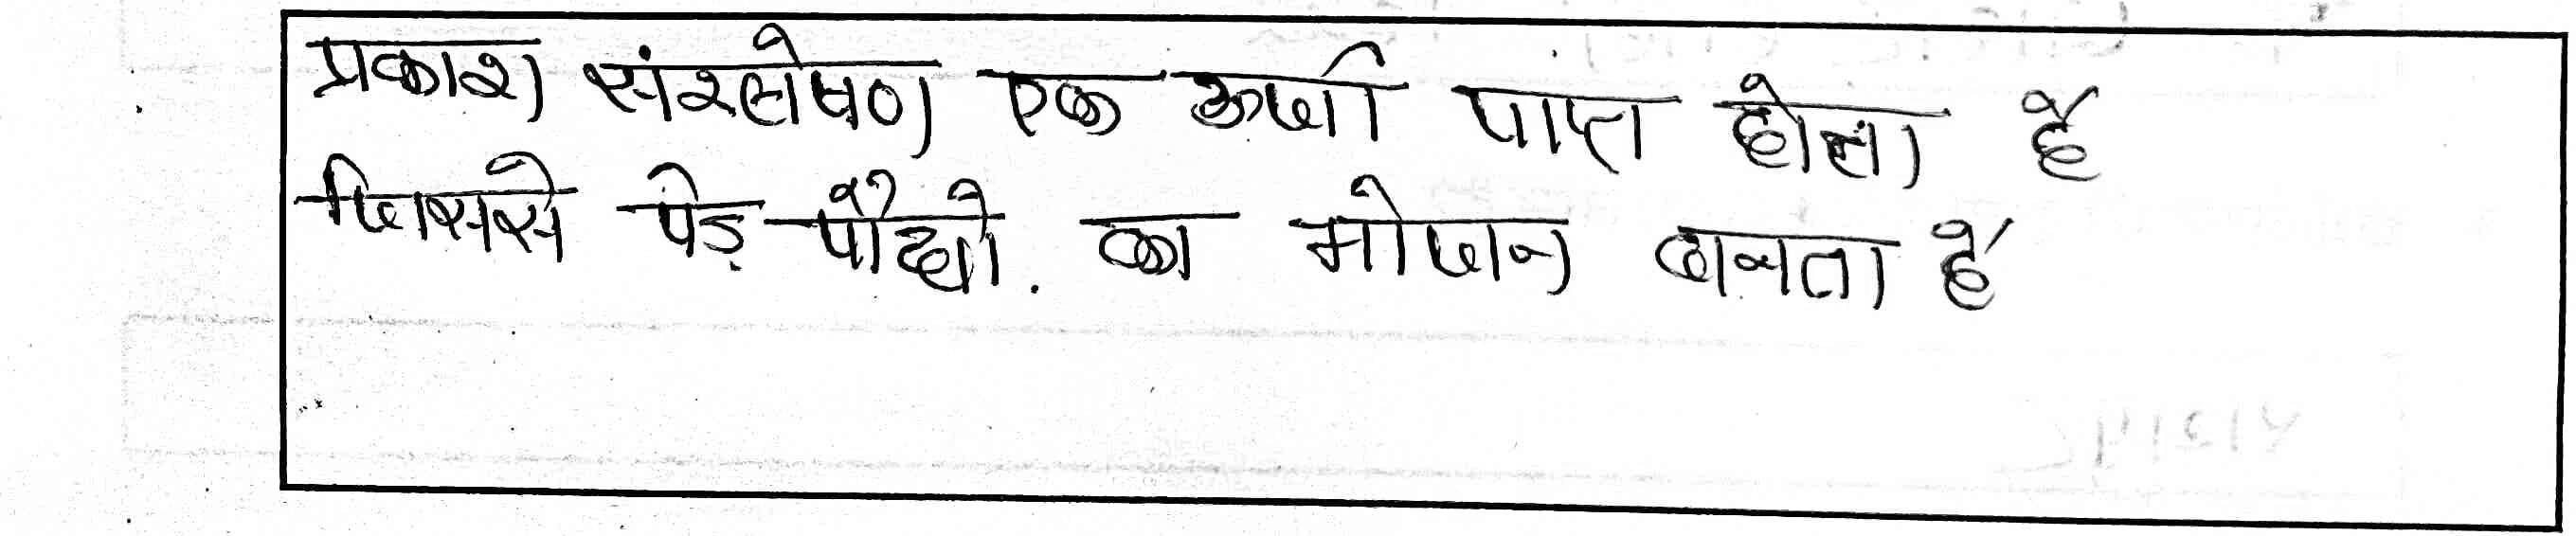 प्रकाश संश्लेषण एक ऊर्जा पाप्त होता है
जिससे पेड़ पौधो. का भोजन बनता है